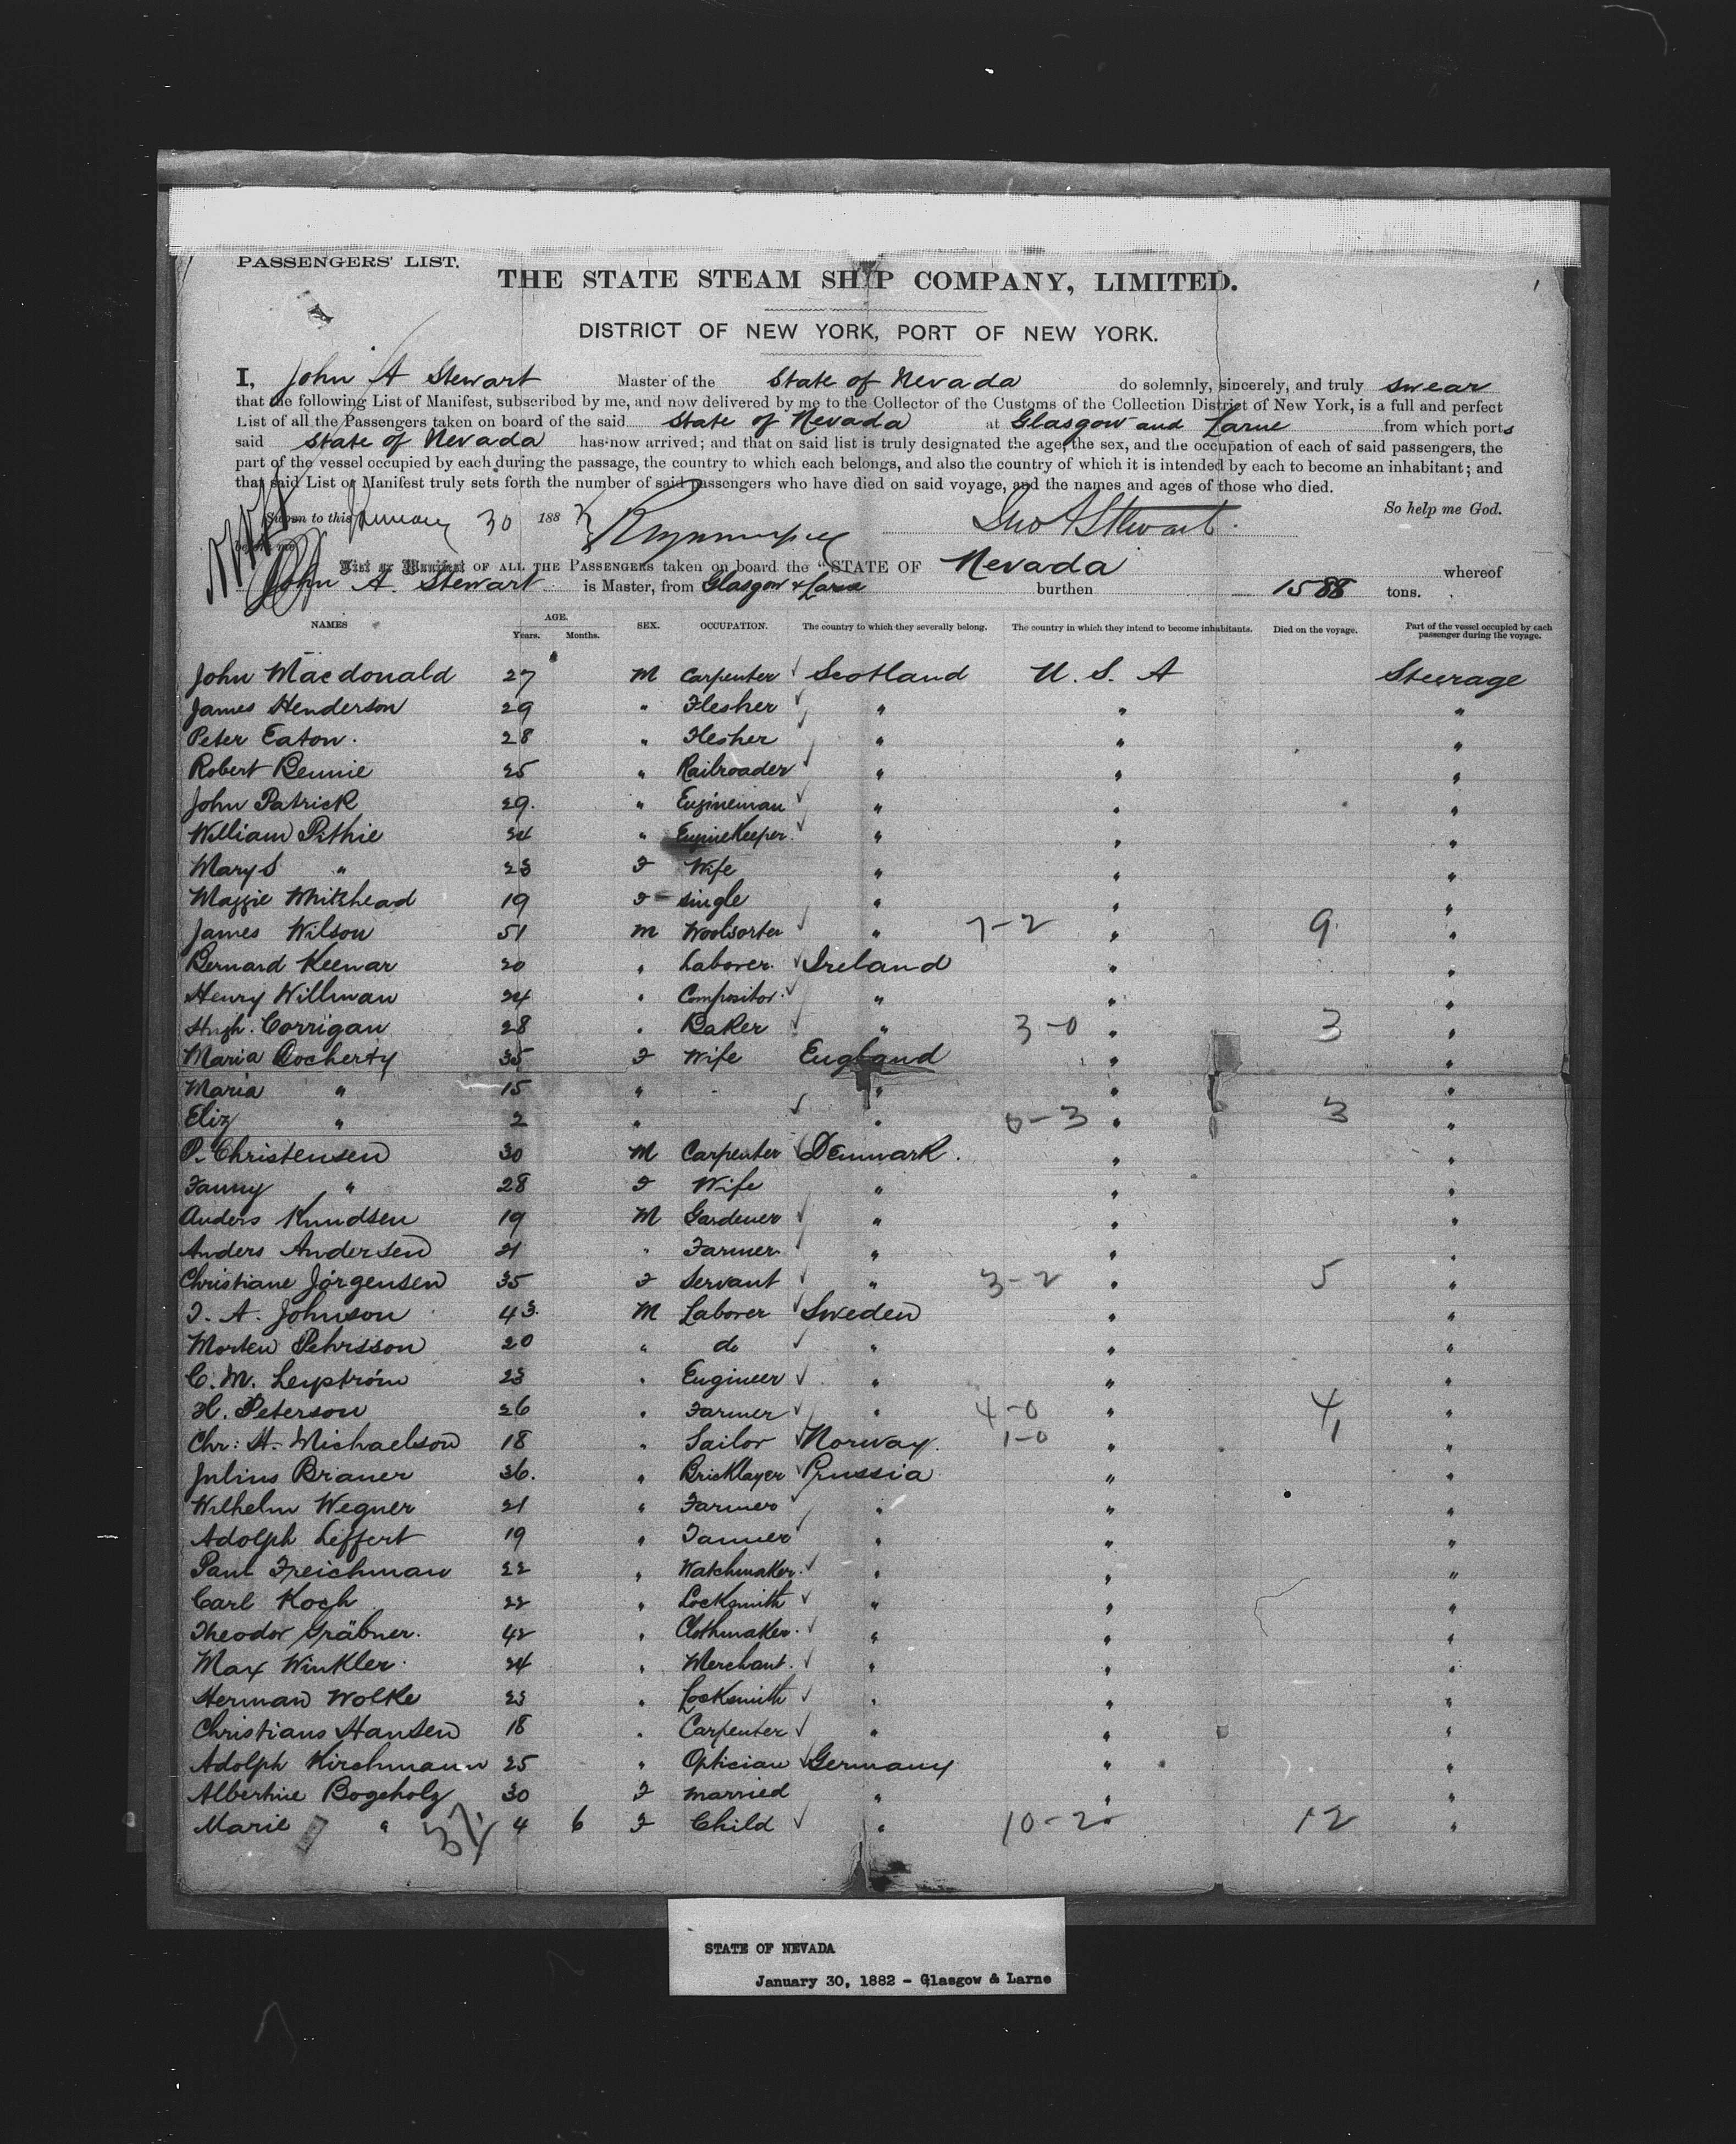 PASSENGERS' LIST.
1
THE STATE STEAM SHIP COMPANY, LIMITED.
DISTRICT OF NEW YORK, PORT OF NEW YORK.
I, John A Stewart Master of the State of Nevada do solemnly, sincerely, and truly swear
that the following List of Manifest, subscribed by me, and now delivered by me to the Collector of the Customs of the Collection District of New York, is a full and perfect
List of all the Passengers taken on board of the said State of Nevada at Glasgow and Larne from which ports
said State of Nevada has now arrived; and that on said list is truly designated the age, the sex, and the occupation of each of said passengers, the
part of the vessel occupied by each during the passage, the country to which each belongs, and also the country of which it is intended by each to become an inhabitant; and
that said List or Manifest truly sets forth the number of said passengers who have died on said voyage, and the names and ages of those who died.
Sworn to this January 30 188 Jno A Stewart So help me God.
before me
List or Manifest OF ALL THE PASSENGERS taken on board the "STATE OF Nevada whereof
John A. Stewart is Master, from Glasgow & Larne burthen 1588 tons.
NAMES AGE. Years. Months. SEX. OCCUPATION. The country to which they severally belong. The country in which they intend to become inhabitants. Died on the voyage. Part of the vessel occupied by each passenger during the voyage.
John Macdonald 27 M Carpenter Scotland U. S. A Steerage
James Henderson 29 " Flesher " " "
Peter Eaton. 28 " Flesher " " "
Robert Rennie 25 " Railroader " " "
John Patrick 29. " Engineman " " "
William Pithie 24 " EngineKeeper " " "
Mary S " 23 F Wife " " "
Maggie Whitehead 19 F single " " "
James Wilson 51 M Woolsorter " 7-2 " 9 "
Bernard Keenar 20 " Laborer. Ireland " "
Henry Willman 24 " Compositor. " " "
Hugh. Corrigan 28 " Baker " 3-0 " 3 "
Maria Docherty 35 F Wife England " "
Maria " 15 " - " " "
Eliz " 2 " " 0-3 " 3 "
P. Christensen 30 M Carpenter Denmark. " "
Fanny " 28 F Wife " " "
Anders Knudsen 19 M Gardener " " "
Anders Andersen 21 " Farmer. " " "
Christiane Jörgensen 35 F Servant " 3-2 " 5 "
J. A. Johnson 43. M Laborer Sweden " "
Morten Pehrsson 20 " do " " "
C. M. 23 " Engineer " " "
H. Peterson 26 " Farmer " 4-0 " 4 "
Chr: H. Michaelson 18 " Sailor Norway. 1-0 " 1 "
Julius Brauer 36. " Bricklayer Prussia " "
Wilhelm Wegner 21 " Farmer " " "
Adolph Leffert 19 " Tanner " " "
Paul Freichman 22 " Watchmaker. " " "
Carl Koch 22 " Locksmith " " "
Theodor Gräbner. 42 " Clothmaker. " " "
Max Winkler. 24 " Merchant. " " "
Herman Wolke 23 " Locksmith " " "
Christians Hansen 18 " Carpenter " " "
Adolph Kirchmann 25 " Optician Germany " "
Albertine Bogeholz 30 F married " " "
Marie " 37 4 6 F Child " 10-2 " 12 "
STATE OF NEVADA
January 30, 1882 - Glasgow & Larne